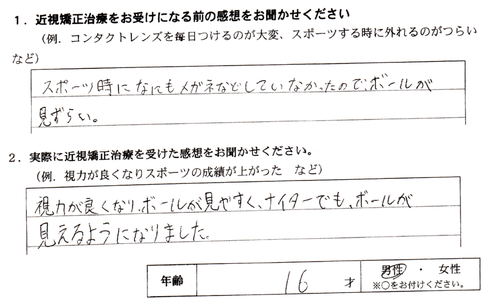 1．近視矯正治療をお受けになる前の感想をお聞かせください
（例．コンタクトレンズを毎日つけるのが大変、スポーツする時に外れるのがつらい
など）
スポーツ時になにもメガネなどしていなかったので、ボールが
見ずらい。
2．実際に近視矯正治療を受けた感想をお聞かせください。
（例．視力が良くなりスポーツの成績が上がった　など）
視力が良くなり、ボールが見やすく、ナイターでも、ボールが
見えるようになりました。
年齢　16　才　男性 ・ 女性
※○をお付けください。